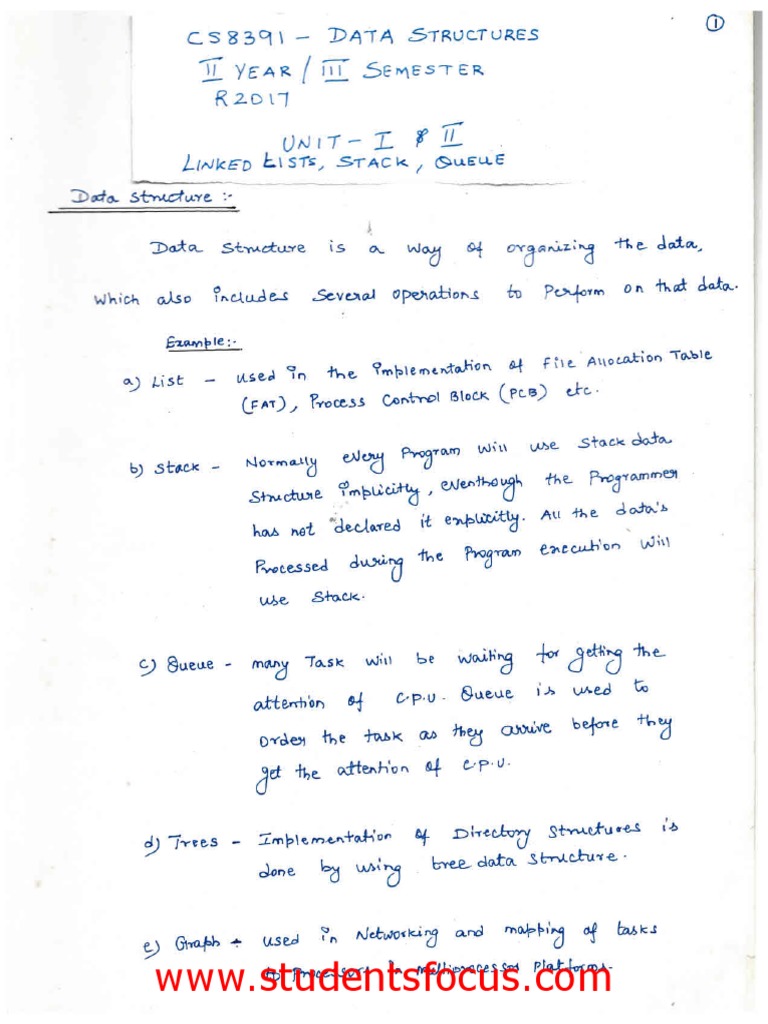 1
CS8391 - DATA STRUCTURES
II YEAR / III SEMESTER
R2017
UNIT - I & II
LINKED LISTS, STACK, QUEUE
Data Structure :-
Data Structure is a way of organizing the data,
which also includes several operations to perform on that data.
Example:-
a) List - used in the implementation of File Allocation Table
(FAT), Process Control Block (PCB) etc.
b) Stack - Normally every Program will use Stack data
Structure implicitly, eventhough the Programmer
has not declared it explicitly. All the data's
Processed during the Program execution will
use Stack.
c) Queue - many Task will be waiting for getting the
attention of C.P.U. Queue is used to
order the task as they arrive before they
get the attention of C.P.U.
d) Trees - Implementation of Directory Structures is
done by using tree data structure.
e) Graph - used in Networking and mapping of tasks
to Processors in multiprocessor Platforms.
www.studentsfocus.com